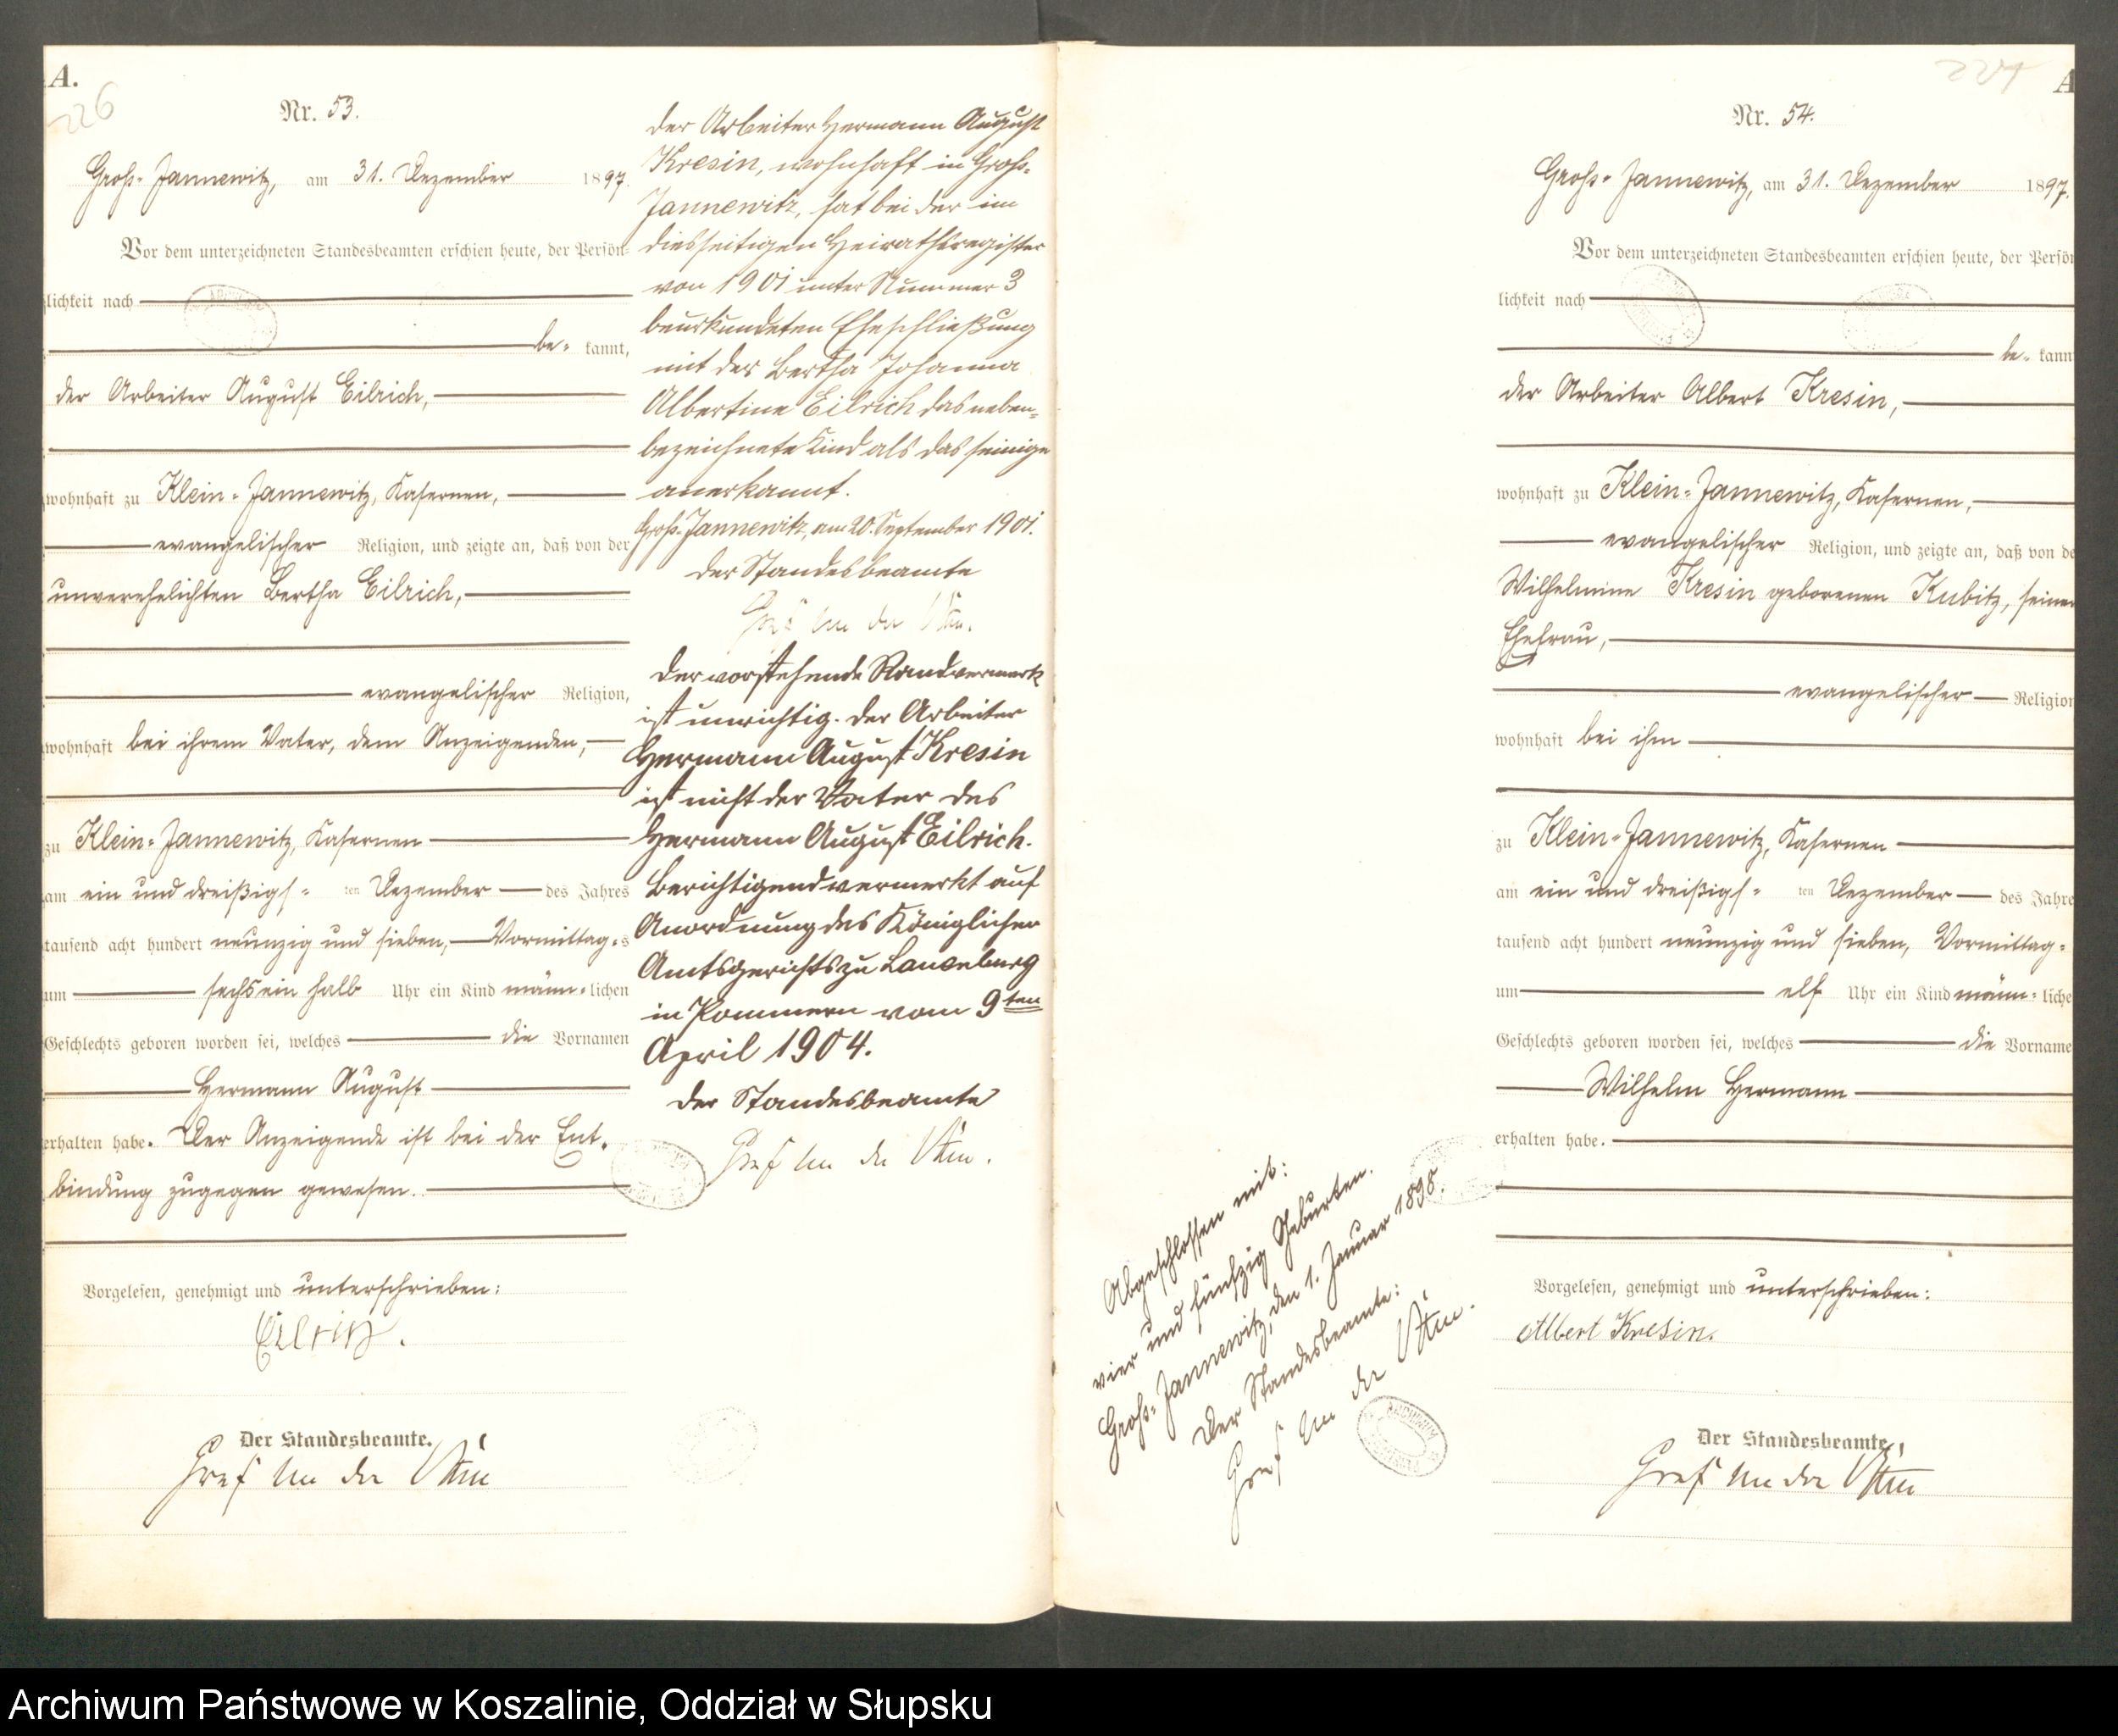 A.
226
Nr. 53.
Groß-Jannewitz, am 31. Dezember 1897.
Vor dem unterzeichneten Standesbeamten erschien heute, der Persön-
lichkeit nach
be- kannt,
der Arbeiter August Eilrich,
wohnhaft zu Klein-Jannewitz, Kasernen,
evangelischer Religion, und zeigte an, daß von der
unverehelichten Bertha Eilrich,
evangelischer Religion,
wohnhaft bei ihrem Vater, dem Anzeigenden,
zu Klein-Jannewitz, Kasernen
am ein und dreißigs- ten Dezember des Jahres
tausend acht hundert neunzig und sieben, Vormittag-s
um sechs ein halb Uhr ein Kind männ-lichen
Geschlechts geboren worden sei, welches die Vornamen
Hermann August
erhalten habe. Der Anzeigende ist bei der Ent-
bindung zugegen gewesen.
Vorgelesen, genehmigt und unterschrieben:
Eilrich.
Der Standesbeamte.
Graf
der Arbeiter Hermann August
Kresin, wohnhaft in Groß-
Jannewitz, hat bei der im
diesseitigen Heirathsregister
von 1901 unter Nummer 3
beurkundeten Eheschließung
mit der Bertha Johanna
Albertine Eilrich das neben-
bezeichnete Kind als das seinige
anerkannt.
Groß-Jannewitz, am 20. September 1901.
Der Standesbeamte
Graf
Der vorstehende Randvermerk
ist unrichtig. Der Arbeiter
Hermann August Kresin
ist nicht der Vater des
Hermann August Eilrich.
Berichtigend vermerkt auf
Anordnung des Königlichen
Amtsgerichts zu Lauenburg
in Pommern vom 9ten
April 1904.
Der Standesbeamte
Graf
Abgeschlossen mit:
vier und fünfzig Geburten.
Groß-Jannewitz, den 1. Januar 1898.
Der Standesbeamte:
Graf
A
227
Nr. 54.
Groß-Jannewitz, am 31. Dezember 1897.
Vor dem unterzeichneten Standesbeamten erschien heute, der Persön
lichkeit nach
be- kann
der Arbeiter Albert Kresin,
wohnhaft zu Klein-Jannewitz, Kasernen,
evangelischer Religion, und zeigte an, daß von de
Wilhelmine Kresin geborenen Kubitz, seiner
Ehefrau,
evangelischer Religion
wohnhaft bei ihm
zu Klein-Jannewitz, Kasernen
am ein und dreißigs- ten Dezember des Jahre
tausend acht hundert neunzig und sieben, Vormittag-
um elf Uhr ein Kind männ-liche
Geschlechts geboren worden sei, welches die Vorname
Wilhelm Hermann
erhalten habe.
Vorgelesen, genehmigt und unterschrieben:
Albert Kresin.
Der Standesbeamte,
Graf
Archiwum Państwowe w Koszalinie, Oddział w Słupsku